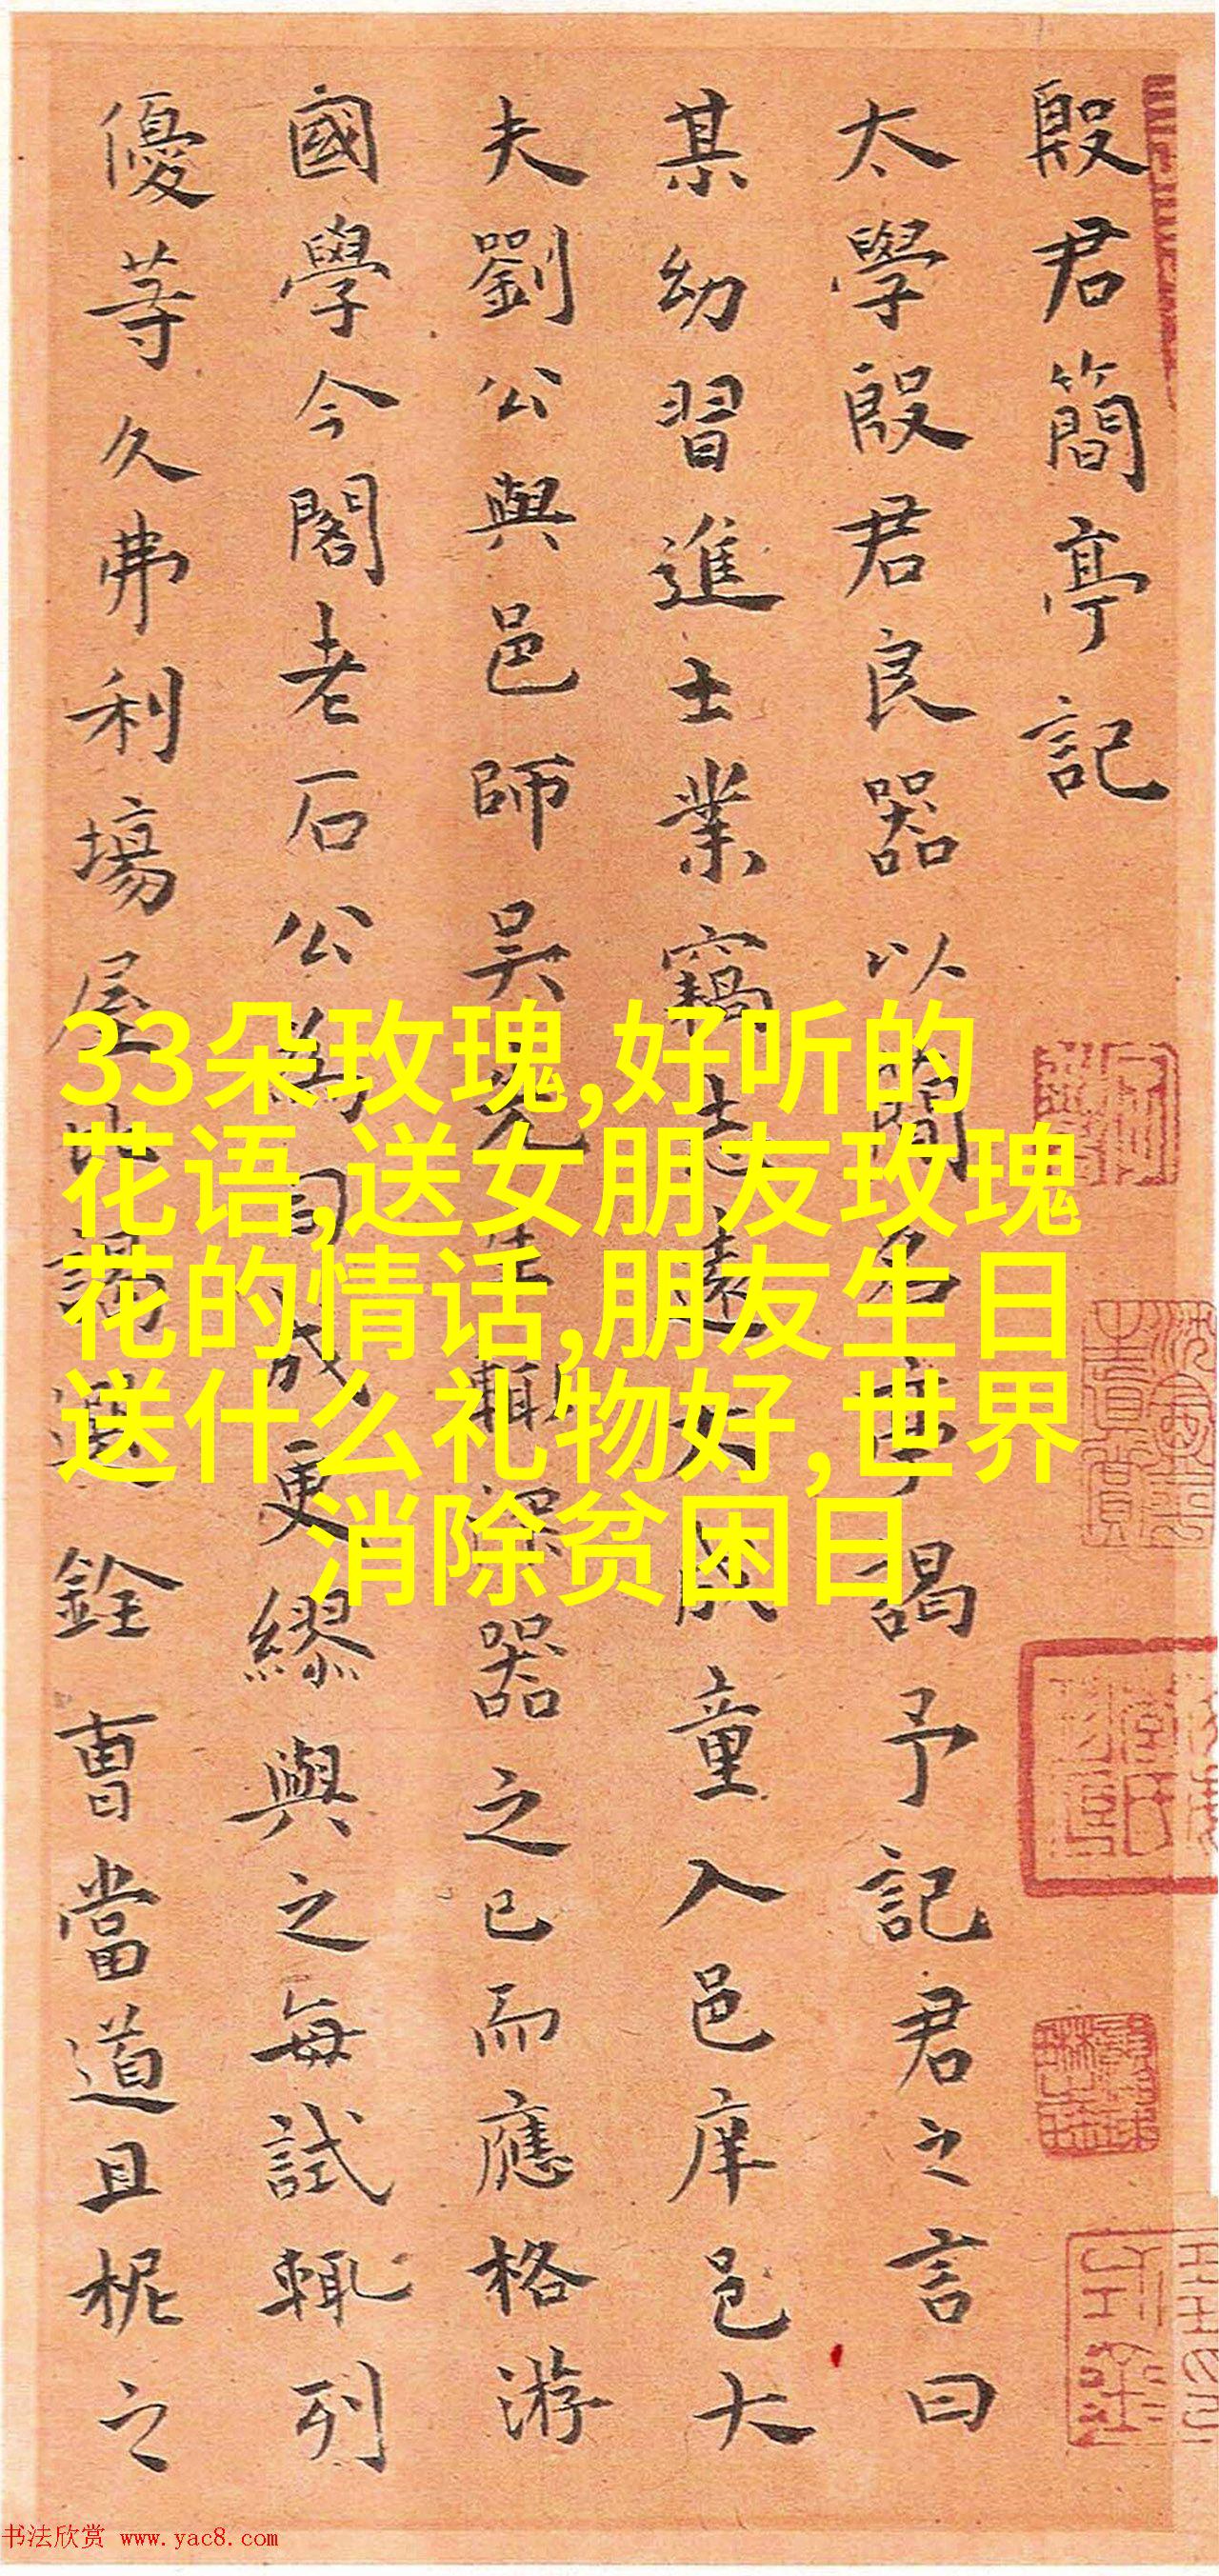 殷君簡亭記
太學殷君良器以簡名亭謁予記君之言曰
某幼習進士業竊志遠大成童入邑庠邑大
夫劉公與邑師吳先生輒深器之已而應格游
國學今閣老石公為司成更繆與之每試輒列
優等久弗利場屋此謁選銓曹當道且柅之
33朵玫瑰,好听的
花语,送女朋友玫瑰
花的情话,朋友生日
送什么礼物好,世界
消除贫困日
书法欣赏 www.yac8.com